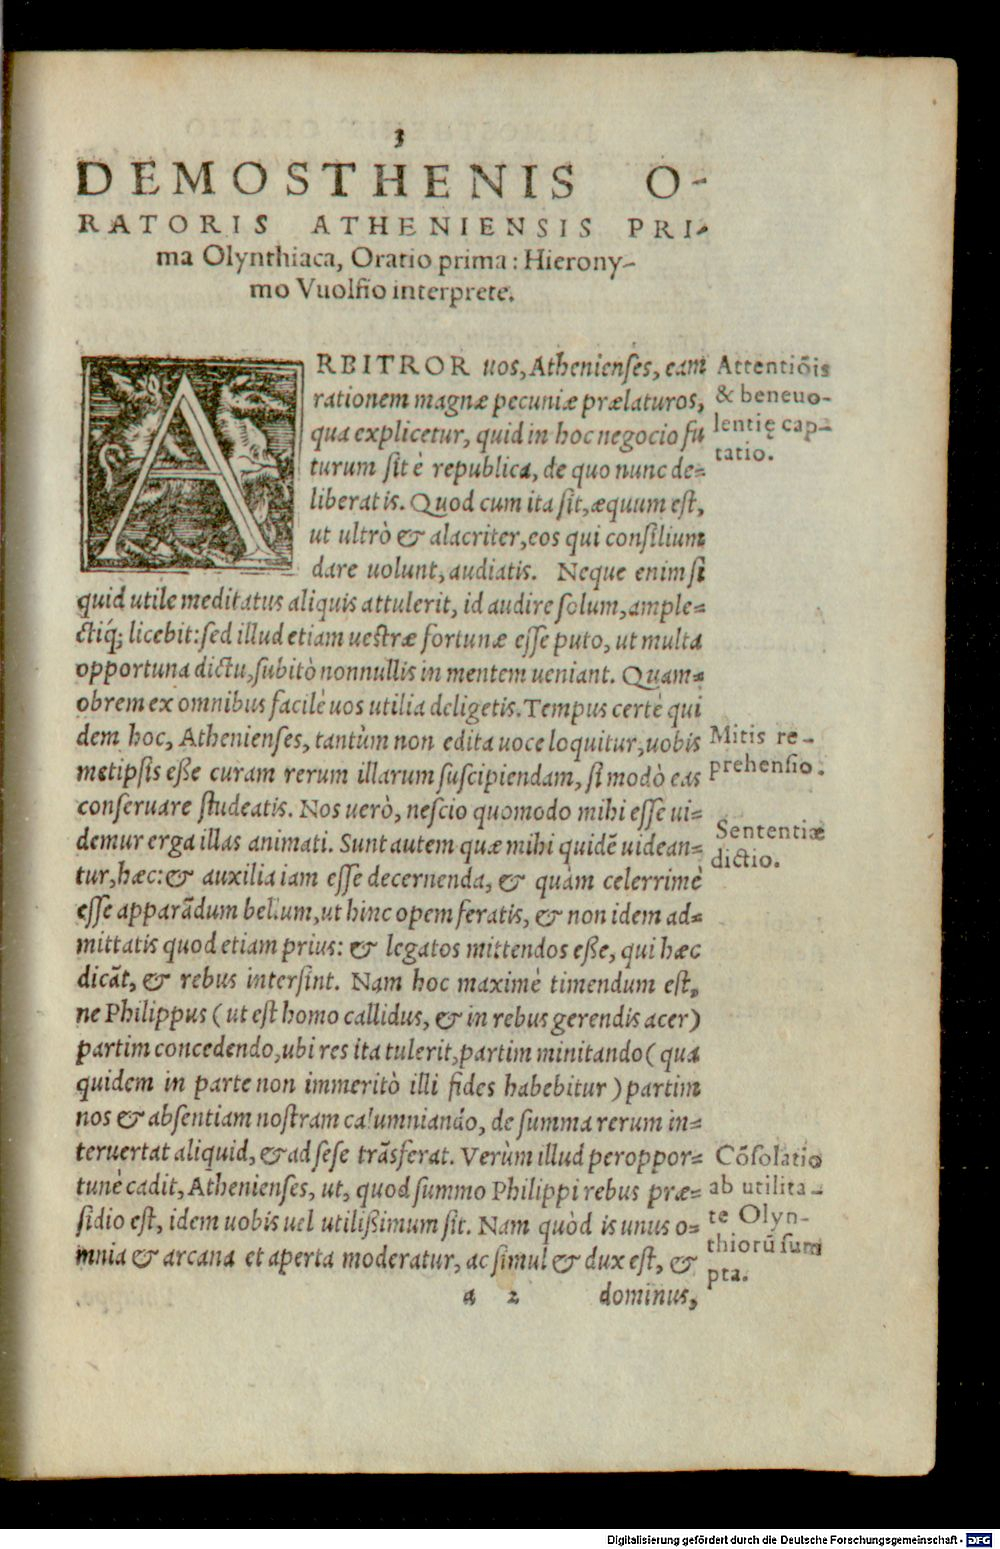 3
DEMOSTHENIS O-
RATORIS ATHENIENSIS PRI-
ma Olynthiaca, Oratio prima: Hierony-
mo Vuolfio interprete.
ARBITROR uos, Athenienses, eam
rationem magnæ pecuniæ prælaturos,
qua explicetur, quid in hoc negocio fu
turum sit è republica, de quo nunc de-
liberatis. Quod cum ita sit, æquum est,
ut ultrò & alacriter, eos qui consilium
dare uolunt, audiatis. Neque enim si
quid utile meditatus aliquis attulerit, id audire solum, ample-
ctiq́; licebit: sed illud etiam uestræ fortunæ esse puto, ut multa
opportuna dictu, subitò nonnullis in mentem ueniant. Quam-
obrem ex omnibus facilè uos utilia deligetis. Tempus certè qui
dem hoc, Athenienses, tantùm non edita uoce loquitur, uobis
metipsis eße curam rerum illarum suscipiendam, si modò eas
conseruare studeatis. Nos uerò, nescio quomodo mihi esse ui-
demur erga illas animati. Sunt autem quæ mihi quidē uidean-
tur, hæc: & auxilia iam esse decernenda, & quàm celerrimè
esse apparādum bellum, ut hinc opem feratis, & non idem ad-
mittatis quod etiam prius: & legatos mittendos eße, qui hæc
dicāt, & rebus intersint. Nam hoc maximè timendum est,
ne Philippus (ut est homo callidus, & in rebus gerendis acer)
partim concedendo, ubi res ita tulerit, partim minitando (qua
quidem in parte non immeritò illi fides habebitur) partim
nos & absentiam nostram calumniando, de summa rerum in-
teruertat aliquid, & ad sese trāsferat. Verùm illud peroppor-
tunè cadit, Athenienses, ut, quod summo Philippi rebus præ-
sidio est, idem uobis uel utilißimum sit. Nam quòd is unus o-
mnia & arcana et aperta moderatur, ac simul & dux est, &
a 2 dominus,
Attentiōis
& beneuo-
lentię cap-
tatio.
Mitis re-
prehensio.
Sententiæ
dictio.
Cōsolatio
ab utilita-
te Olyn-
thiorū sum
pta.
Digitalisierung gefördert durch die Deutsche Forschungsgemeinschaft - DFG